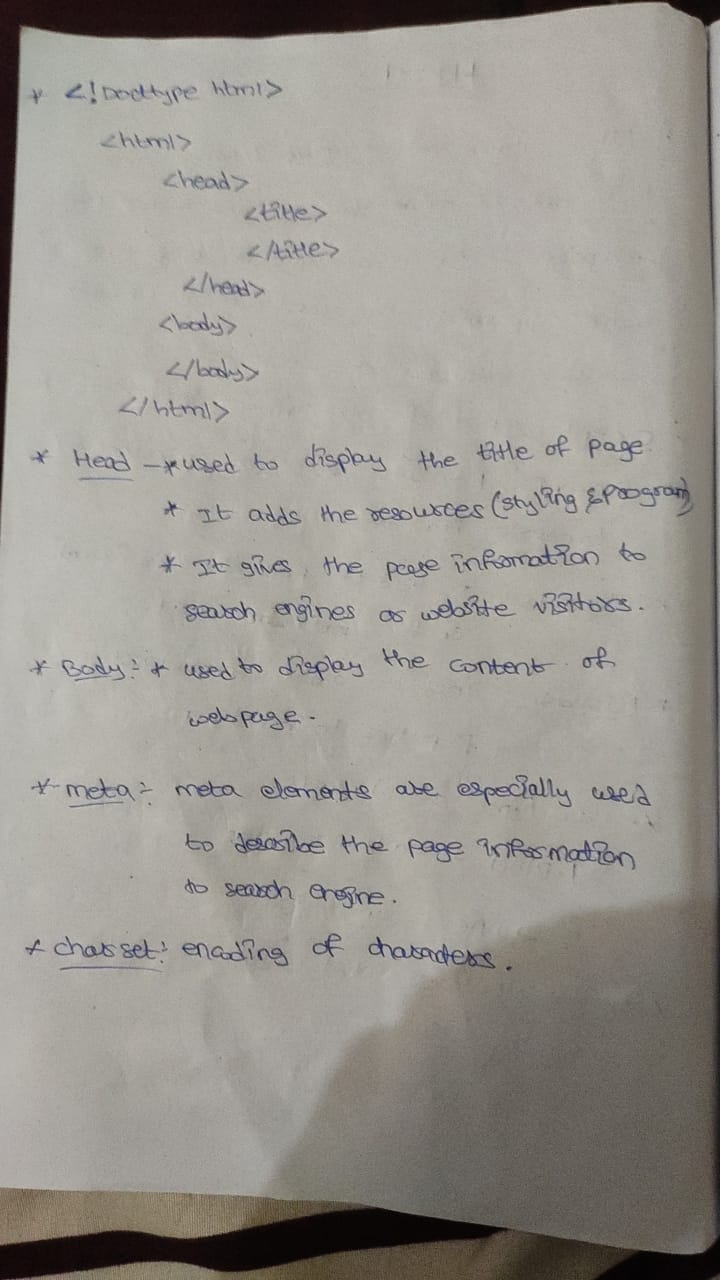 * <!Doctype html>
<html>
<head>
<title>
</title>
</head>
<body>
</body>
</html>
* Head - * used to display the title of page
* It adds the resources (styling & program)
* It gives the page information to
search engines or website visitors.
* Body: * used to display the content of
webpage.
* meta: meta elements are especially used
to describe the page information
to search engine.
* charset: encoding of characters.